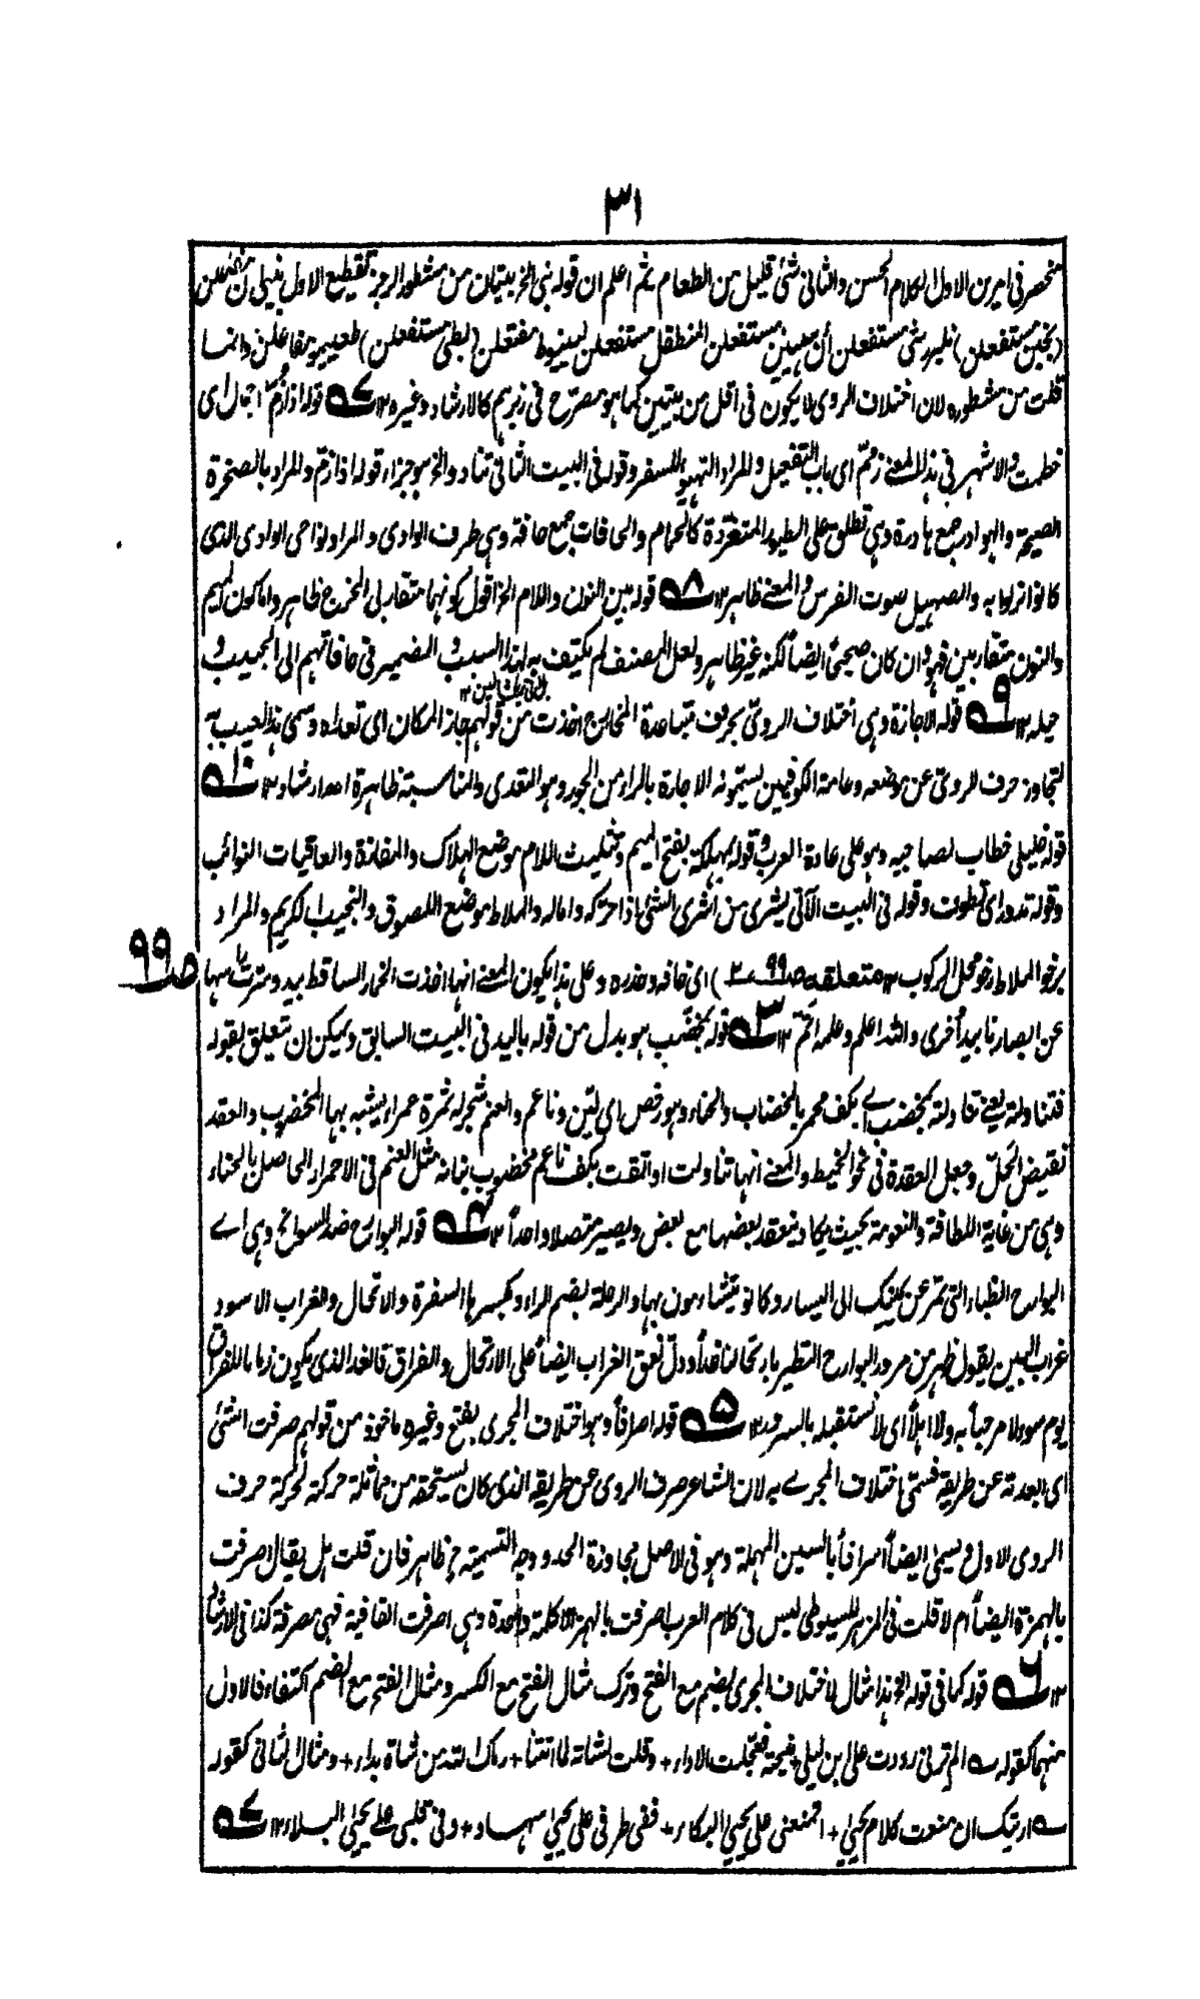 ٣١
منحصر فى امرين الاول الكلام الحسن والثانى شئ قليل من الطعام ثم اعلم ان قوله بنى الخ بيتان من مشطور الرجز تقطيع الاول بنيى ان مفتعلن
نلبر شئ مستفعلن أن هينن مستفعلن المنطقل مستفعلن لينو مفتعلن (لطى مستفعلن) طعييمو مفاعلن وانما
قلت من مشطوره لان اختلاف الروى لا يكون فى اقل من بيتين كما هو مصرّح فى زبرهم كالارشاد وغيره ١٢ ٧ قوله اذا زمّ اجمال اى
خطمت والاشهر فى هذا المعنے زمّم اى باب التفعيل والمراد التهيؤ للسفر وقوله فى البيت الثانى تناد والخ هو جزاء قوله اذا زمّ والمراد بالصخرة
الصيحة والهوادر جمع هادرة وهى تطلق على الطيور المتغرّدة كالحمام والحافات جمع حافة وهى طرف الوادى والمراد نواحى الوادى الذى
كانوا نزلوا به والصهيل صوت الفرس والمعنے ظاهر ١٢ ٨ قوله بين النون واللام الخ اقول كونهما متقاربى المخرج ظاهر واما كون الميم
والنون متقاربين فهو وان كان صحيحًا ايضاً لكنه غير ظاهر ولعل المصنف لم يكتف به لهذا السبب والضمير فى حافاتهم الى الحبيب و
حيله ١٢ ٩ قوله الاجازة وهى اختلاف الروىّ بحروف متباعدة المخارج اخذت من قولهم جاز المكان اى تعداه وسمى هذا العيب به
لتجاوز حرف الروىّ عن موضعه وعامة الكوفيين يسمّونه الاجارة بالراء من الجور وهو التعدى والمناسبة ظاهرة ارشاد ١٢ ١٠
قوله خليلى خطاب لصاحبيه وهو على عادة العرب وقوله بمهلكة بفتح الميم وتثليث اللام موضع الهلاك والمفازة والعاقيات النوائب
وقوله تدور اى تطوت وقوله فى البيت الآتى يشرى من اشرى الشئ اذا حرّكه واماله والملاط موضع اللصوق والنجيب الكريم والمراد
برخو الملاط رخو محل الركوب ١٢ متعلقه ص٩٩ ٢ ) اى خافه وحذره وعلى هذا يكون المعنے انها اخذت الخمار الساقط بيد وسترت بها ص٩٩
عن ابصارنا بيد أخرى والله اعلم وعلمه اتمّ ١٢ ٣ قوله بمخضّب هو بدل من قوله باليد فى البيت السابق ويمكن ان تتعلق بقوله
فتناولته يعنے تناولته بمخضب اے بكف محمر بالخضاب والحناء وهو رخص اى ليّن وناعم والعنم شجر له ثمرة حمراء يشبه بها المخضوب والعقد
نقيض الحلّ وجعل العقدة فى نحو الخيط والمعنے انها تناولت او اتقت بكف ناعم مخضوب بنانه مثل العنم فى الاحمرار الحاصل بالحناء
وهى من غاية اللطافة والنعومة بحيث يكاد ينعقد بعضها مع بعض ويصير متصلا واحداً ١٢ ٤ قوله البوارح ضد السوانح وهى اے
البوارح الظباء التى تمرّ عن يمينك الى اليسار وكانوا يتشاءمون بها والرحلة بضم الراء وكسرها السفرة والارتحال والغراب الاسود
غراب البين يقول ظهر من مرور البوارح التطير بارتحالنا غداً ودلّ نعق الغراب ايضاً على الارتحال والفراق فالغد الذى يكون زمانا للفراق
يوم سوء لا مرحباً به ولا اهلاً اى لا نستقبله بالسرور ١٢ ٥ قوله اصرافاً وهو اختلاف المجرى بفتح وغيره ماخوذ من قولهم صرفت الشئ
اى ابعدته عن طريقه فسمّى اختلاف المجرے به لان الشاعر صرف الروى عن طريقه الذى كان يستحقه من مماثلة حركته لحركة حرف
الروى الاول ويسمى ايضاً اسرافاً بالسين المهملة وهو فى الاصل مجاوزة الحد ووجه التسمية ح ظاهر فان قلت هل يقال اصرفت
بالهمزة ايضاً ام لا قلت فى المزهر للسيوطى ليس فى كلام العرب اصرفت بالهمز الا كلمة واحدة وهى اصرفت القافية فهى مصرفة كذا فى الارشاد
١٢ ٦ قوله كما فى قوله الخ هذا مثال لاختلاف المجرى بضم مع الفتح وترك مثال الفتح مع الكسر ومثال الفتح مع الضم اكتفاء فالاول
منهما كقوله ؎ الم ترنى رددت على ابن ليلى + منيحته فعجّلت الاداء + وقلت لشاته لما اتتنا + رماك الله من شاة بداء + ومثال الثانى كقوله
؎ اريتك ان منعت كلام يحيىٰ + اتمنعنى على يحيىٰ البكاء + ففى طرفى على يحيىٰ سهاد + وفى قلبى على يحيىٰ البلاء ١٢ ٧